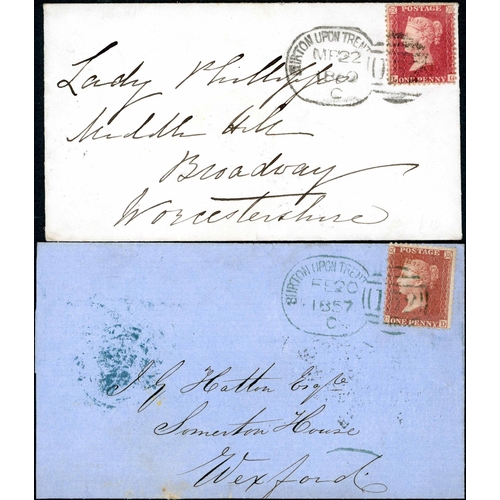 BURTON UPON TRENT
MR 22
1860
C
POSTAGE
ONE PENNY
Lady Phillipps
Middle Hill
Broadway
Worcestershire
BURTON UPON TRENT
FE 20
1857
C
POSTAGE
ONE PENNY
J. G Hatton Esqre
Somerton House
Wexford